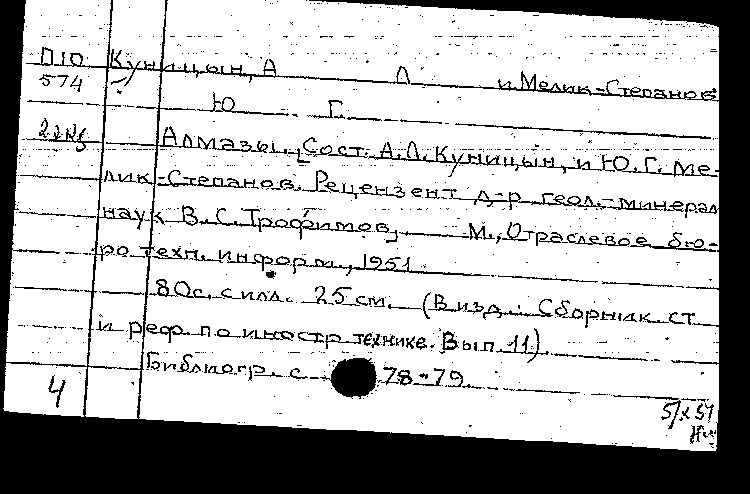 П10 Куницын, А Л и Мелик-Степанов
574 Ю Г.
Алмазы. [Сост. А.Л. Куницын, и Ю.Г. Ме-
лик-Степанов. Рецензент д-р геол.-минерал
наук В.С. Трофимов, М., Отраслевое бю-
ро техн. информ., 1951
80с. с илл. 25 см. (В изд.: Сборник ст
и реф. по иностр технике. Вып. 11).
Библиогр. с 78-79.
4
5/X 51